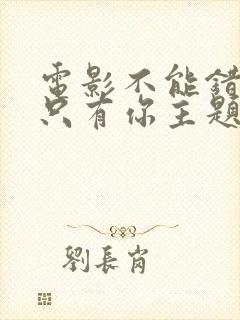 電影不能錯
只有你主題
劉長肖